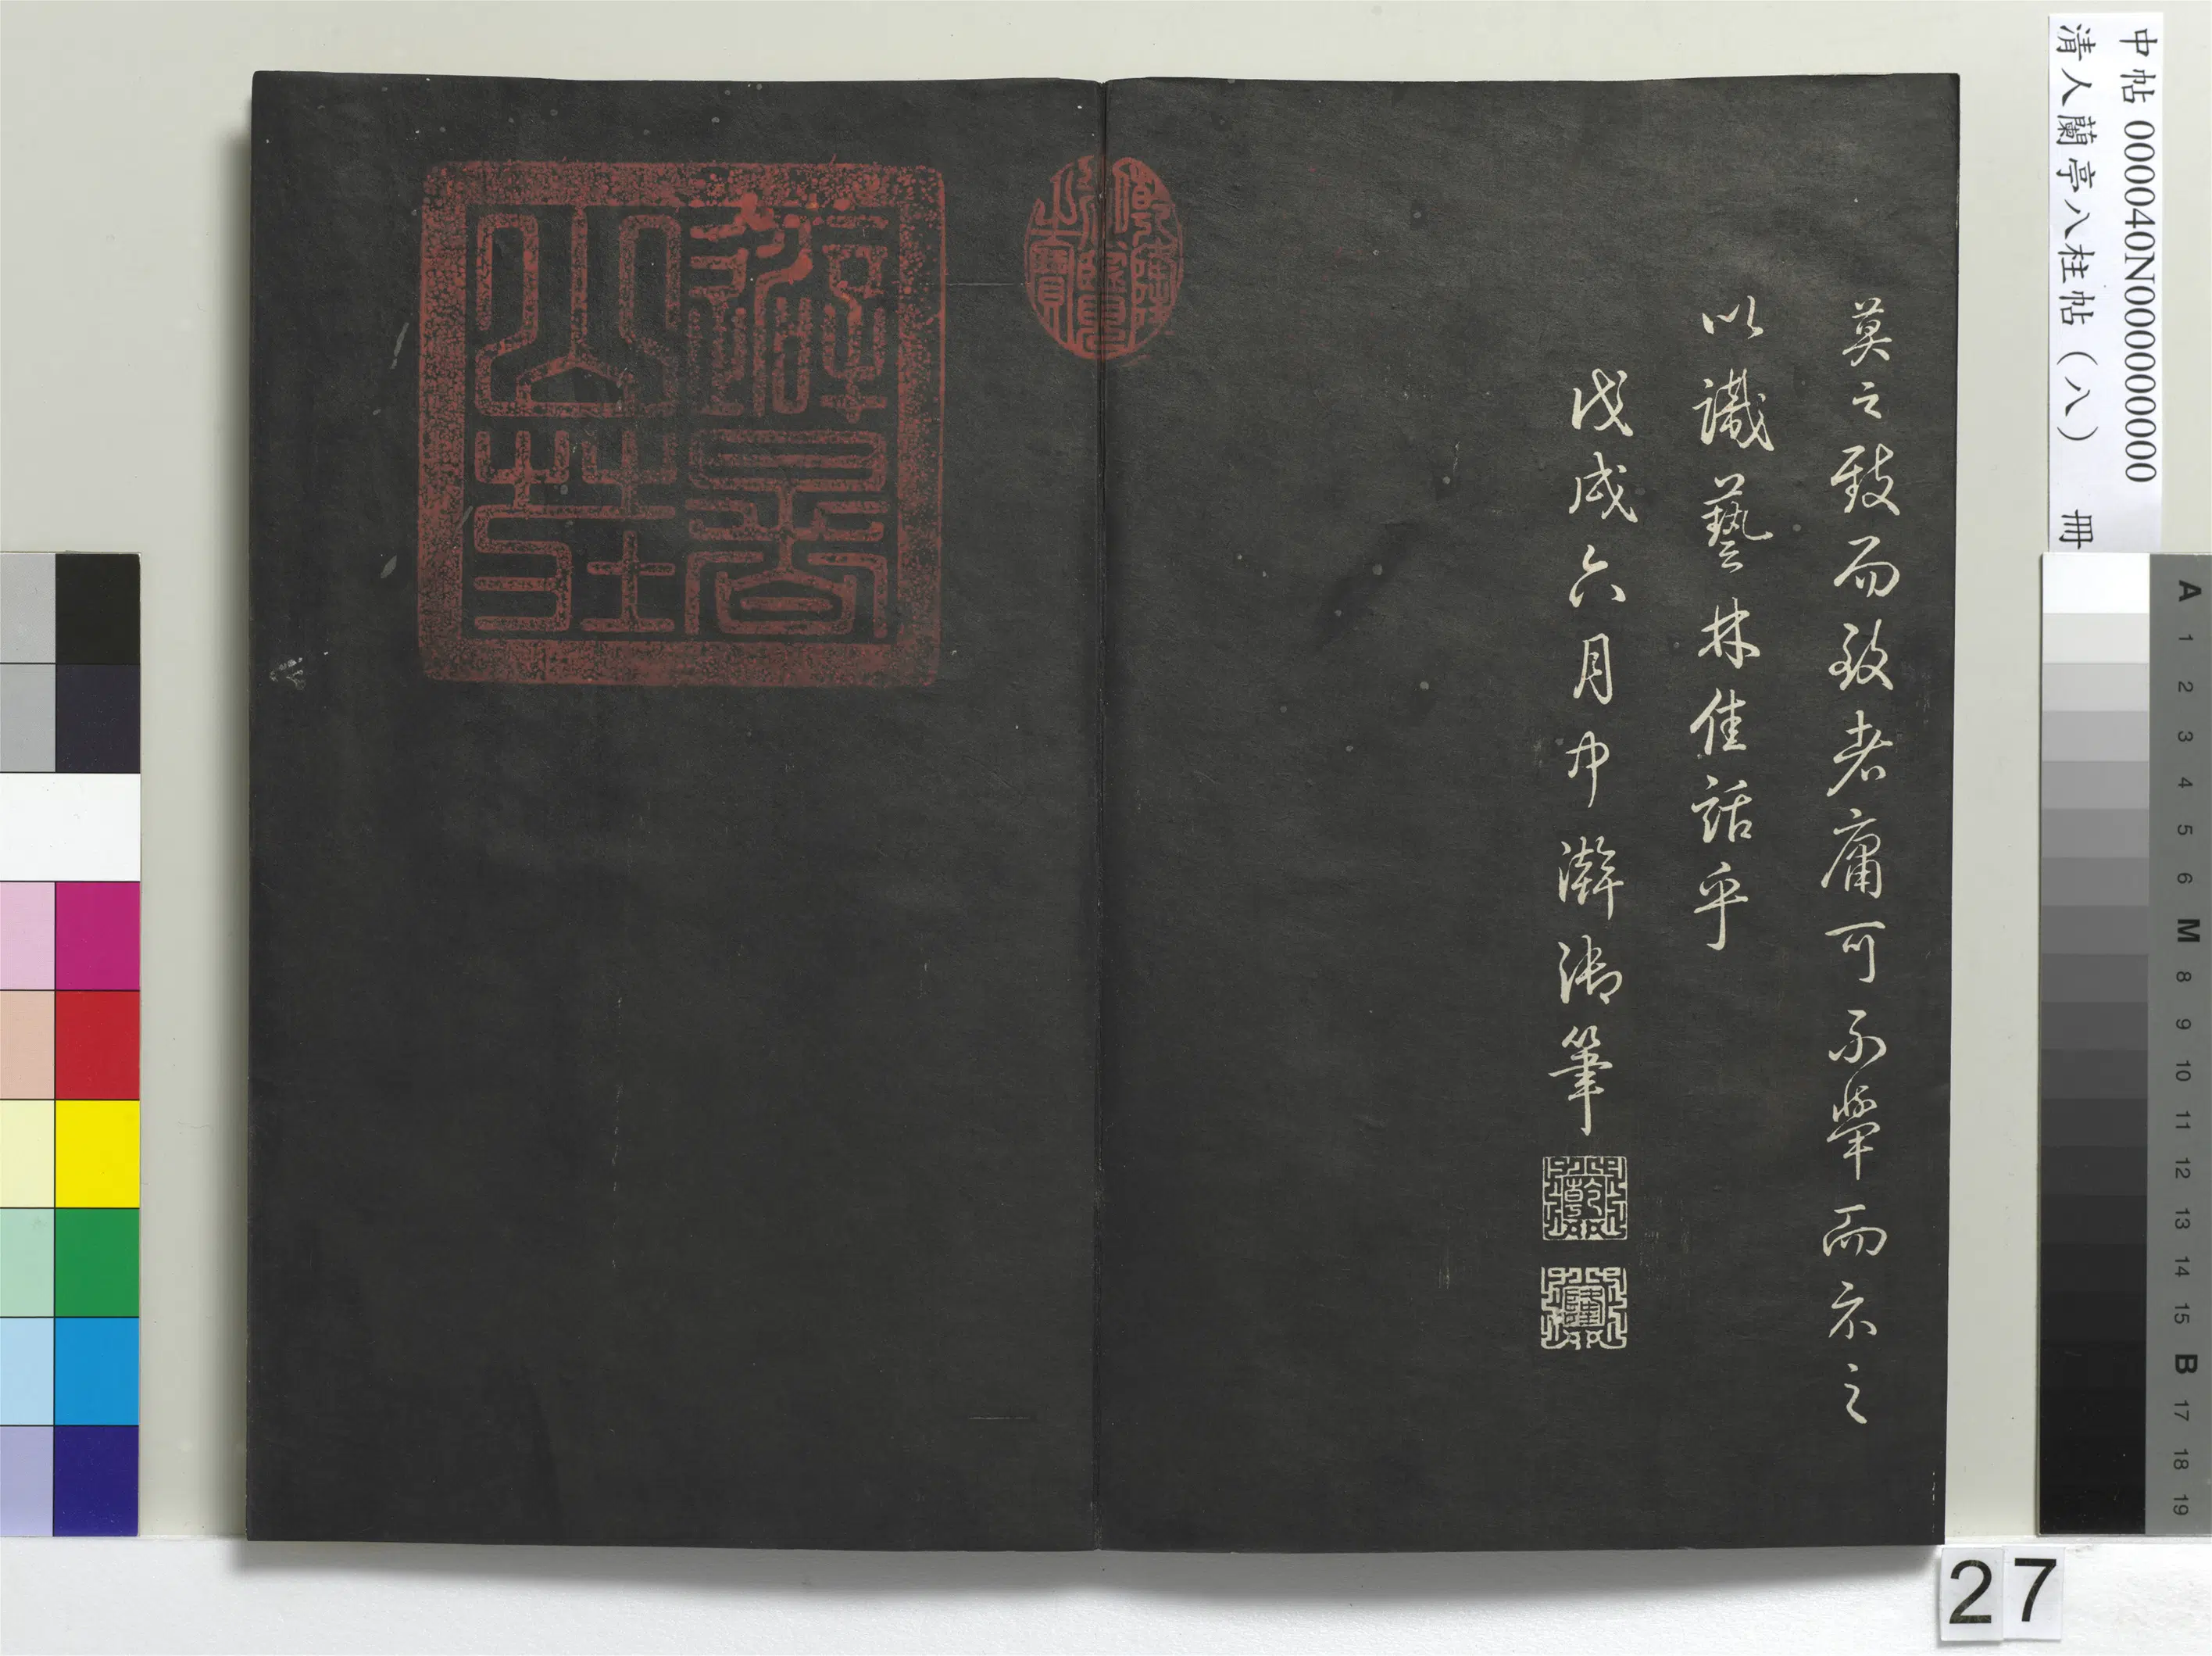 中帖 000040N000000000
清人蘭亭八柱帖（八） 冊
莫之致而致者庸可不舉而示之
以識藝林佳話乎
戊戌六月中澣御筆
乾
隆
避暑山莊
A 1 2 3 4 5 6 M 8 9 10 11 12 13 14 15 B 17 18 19
27